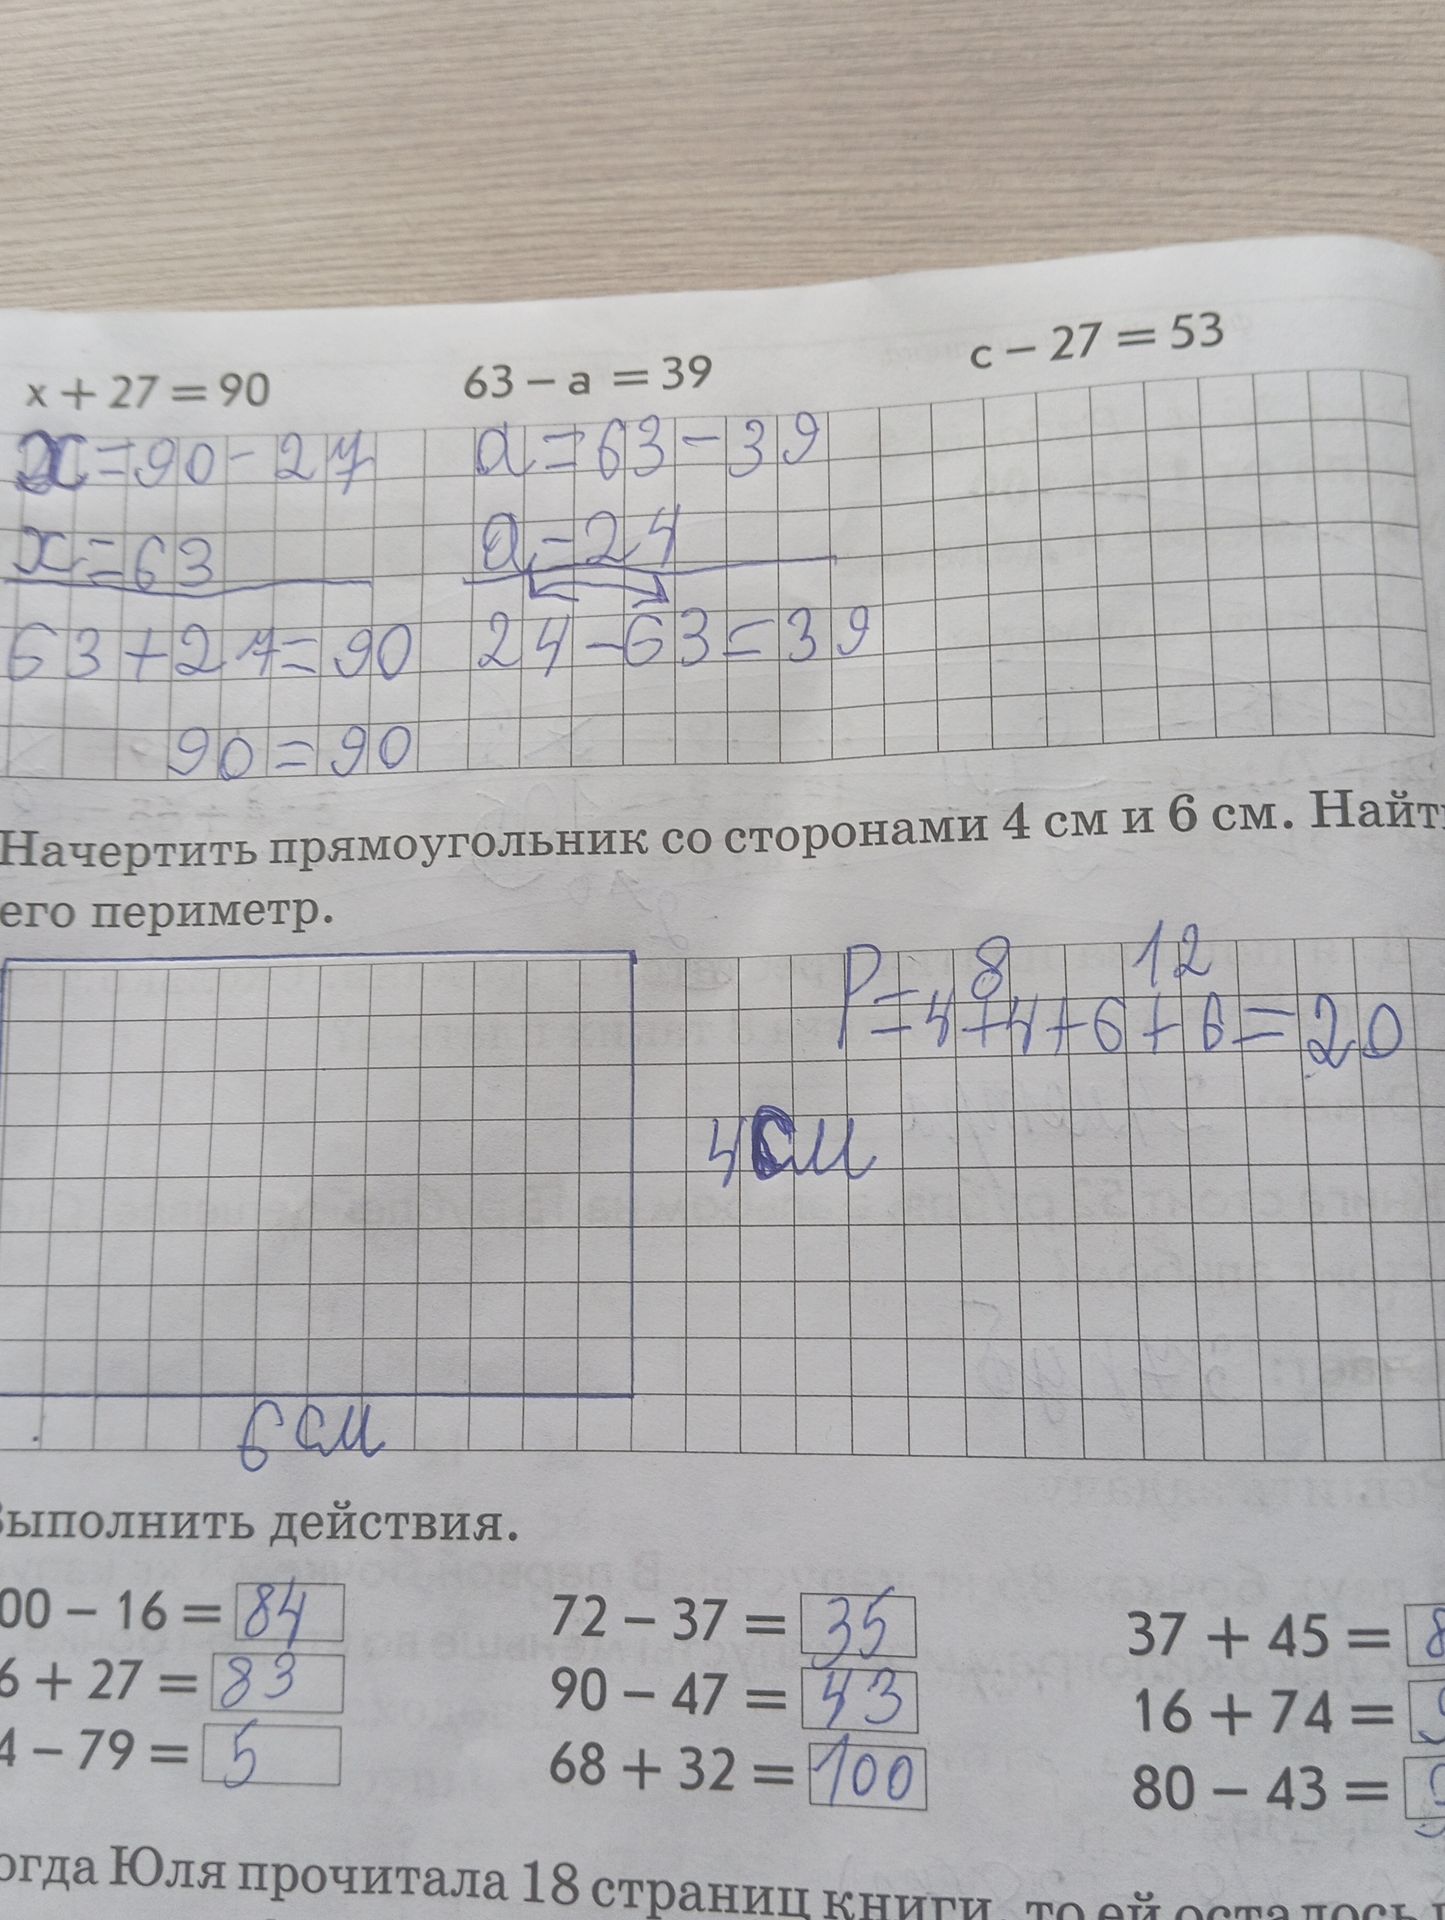 x + 27 = 90 63 – a = 39 c – 27 = 53
x=90-27 a=63-39
x=63 a=24
63+27=90 24-63=39
90=90
Начертить прямоугольник со сторонами 4 см и 6 см. Найт
его периметр.
8 12
P=4+4+6+6=20
4см
6 см
Выполнить действия.
00 – 16 = 84 72 – 37 = 35 37 + 45 = 8
6 + 27 = 83 90 – 47 = 43 16 + 74 =
4 – 79 = 5 68 + 32 = 100 80 – 43 =
огда Юля прочитала 18 страниц книги, то ей осталось